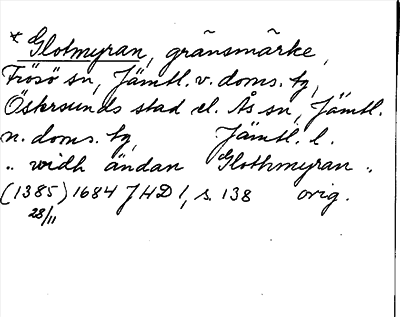 * Glotmyran, gränsmärke,
Frösö sn, Jämtl. v. doms. tg,
Östersunds stad el. Ås sn, Jämtl.
n. doms. tg, Jämtl. l.
" widh ändan Glothmyran "
(1385) 1684 JHD 1, s. 138 orig.
28/11